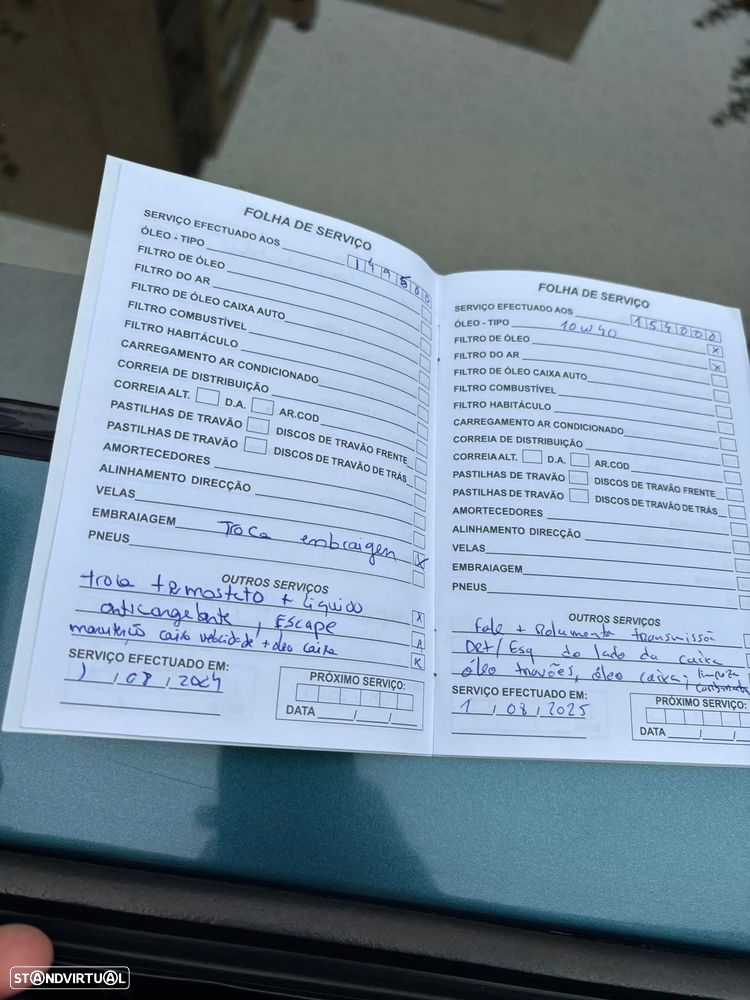 FOLHA DE SERVIÇO
SERVIÇO EFECTUADO AOS 149500
ÓLEO - TIPO
FILTRO DE ÓLEO
FILTRO DO AR
FILTRO DE ÓLEO CAIXA AUTO
FILTRO COMBUSTÍVEL
FILTRO HABITÁCULO
CARREGAMENTO AR CONDICIONADO
CORREIA DE DISTRIBUIÇÃO
CORREIA ALT. D.A. AR.COD
PASTILHAS DE TRAVÃO DISCOS DE TRAVÃO FRENTE
PASTILHAS DE TRAVÃO DISCOS DE TRAVÃO DE TRÁS
AMORTECEDORES
ALINHAMENTO DIRECÇÃO
VELAS
EMBRAIAGEM Troca embraigen X
PNEUS
OUTROS SERVIÇOS
troca termosteto + liquido X
anticongelante, Escape
manutenção caixa velocidade + oleo caixa
SERVIÇO EFECTUADO EM:
1, 08, 2024
PRÓXIMO SERVIÇO:
DATA
FOLHA DE SERVIÇO
SERVIÇO EFECTUADO AOS 154000
ÓLEO - TIPO 10W40
FILTRO DE ÓLEO X
FILTRO DO AR X
FILTRO DE ÓLEO CAIXA AUTO
FILTRO COMBUSTÍVEL
FILTRO HABITÁCULO
CARREGAMENTO AR CONDICIONADO
CORREIA DE DISTRIBUIÇÃO
CORREIA ALT. D.A. AR.COD
PASTILHAS DE TRAVÃO DISCOS DE TRAVÃO FRENTE
PASTILHAS DE TRAVÃO DISCOS DE TRAVÃO DE TRÁS
AMORTECEDORES
ALINHAMENTO DIRECÇÃO
VELAS
EMBRAIAGEM
PNEUS
OUTROS SERVIÇOS
Fole + Rolamento transmissão
/Esq do lado da caixa
óleo travões, óleo caixa; limpeza
SERVIÇO EFECTUADO EM:
1, 08, 2025
PRÓXIMO SERVIÇO:
DATA
STANDVIRTUAL